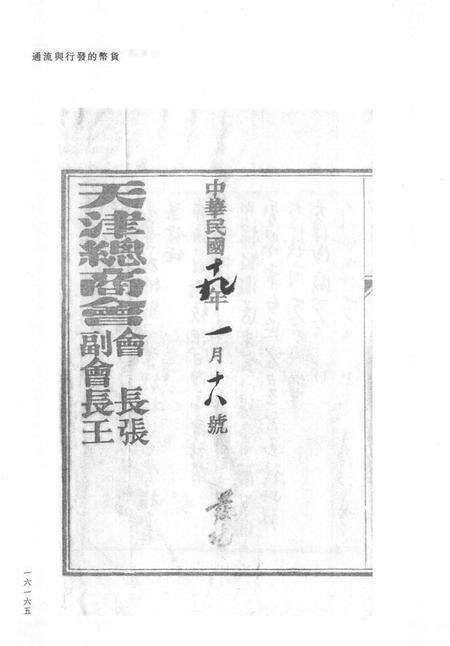 貨幣的發行與流通
中華民國十九年一月十八號
天津總商會
會長張
副會長王
一六一六五